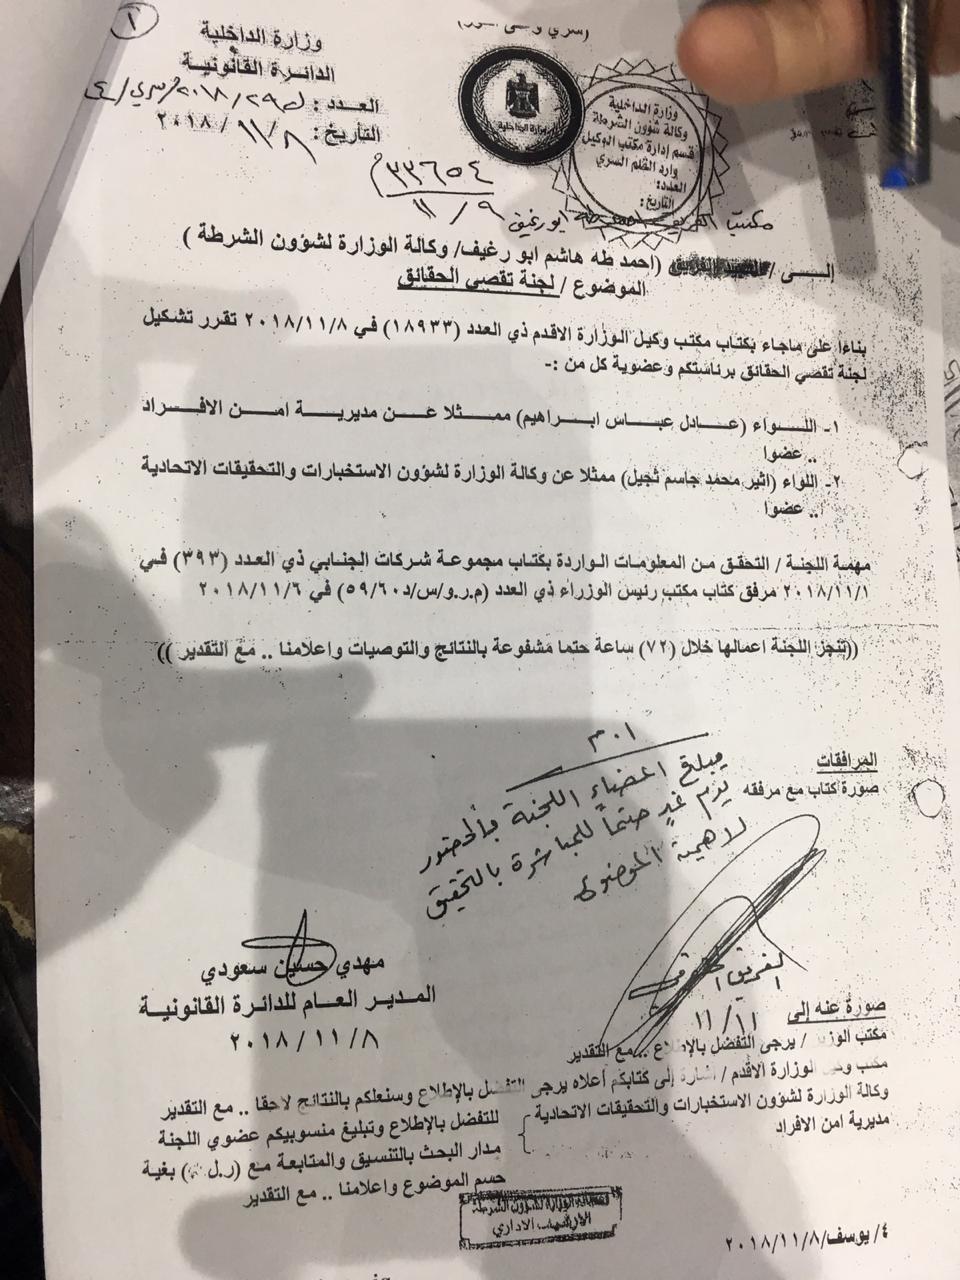 ١
(سري وعلى الفور)
وزارة الداخلية
الدائرة القانونية
العدد :
التاريخ : ٢٠١٨/١١/٨
وزارة الداخلية
وزارة الداخلية
وكالة شؤون الشرطة
قسم إدارة مكتب الوكيل
وارد القلم السري
العدد:
التاريخ:
٣٣٦٥٤
١١/٩
مكتب ابو رغيف
إلـــى / (احمد طه هاشم ابو رغيف/ وكالة الوزارة لشؤون الشرطة )
الموضوع / لجنة تقصي الحقائق
بناءا على ماجاء بكتاب مكتب وكيل الوزارة الاقدم ذي العدد (١٨٩٣٣) في ٢٠١٨/١١/٨ تقرر تشكيل
لجنة تقصي الحقائق برئاستكم وعضوية كل من :-
١- اللــواء (عــادل عبــاس ابــراهيم) ممــثلا عــن مديريــة امــن الافــراد
.. عضوا
٢- اللواء (اثير محمد جاسم ثجيل) ممثلا عن وكالة الوزارة لشؤون الاستخبارات والتحقيقات الاتحادية
.. عضوا
مهمة اللجنة / التحقق من المعلومات الواردة بكتاب مجموعة شركات الجنابي ذي العدد (٣٩٣) في
٢٠١٨/١١/١ مرفق كتاب مكتب رئيس الوزراء ذي العدد (م.ر.و/س/د٥٩/٦٠) في ٢٠١٨/١١/٦
((تنجز اللجنة اعمالها خلال (٧٢) ساعة حتما مشفوعة بالنتائج والتوصيات واعلامنا .. مع التقدير ))
المرافقات
صورة كتاب مع مرفقه
يبلغ اعضاء اللجنة بالحضور
يوم غدٍ حتماً للمباشرة بالتحقيق
لاهمية الموضوع
الفريق
١١/١١
مهدي حسين سعودي
المدير العام للدائرة القانونية
٢٠١٨/١١/٨
صورة عنه إلى
مكتب الوزير / يرجى التفضل بالإطلاع .. مع التقدير
مكتب وكيل الوزارة الاقدم / اشارة إلى كتابكم أعلاه يرجى التفضل بالإطلاع وسنعلكم بالنتائج لاحقا .. مع التقدير
وكالة الوزارة لشؤون الاستخبارات والتحقيقات الاتحادية
مديرية امن الافراد
للتفضل بالإطلاع وتبليغ منسوبيكم عضوي اللجنة
مدار البحث بالتنسيق والمتابعة مع بغية
حسم الموضوع واعلامنا .. مع التقدير
وكالة الوزارة لشؤون الشرطة
الارشيف الاداري
٤/ يوسف/٢٠١٨/١١/٨